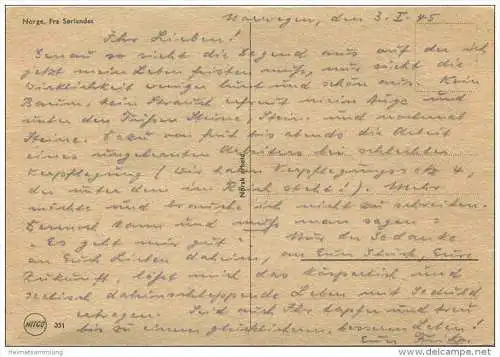 Norge, Fra Sørlandet
Norwegen, den 3. I. 45
Ihr Lieben!
Genau so sieht die Gegend aus auf der ich
jetzt mein Leben fristen muß, nur sieht die
Wirklichkeit weniger bunt und schön aus. Kein
Baum, kein Strauch erfreut mein Auge und
unter den Füßen Steine, Stein- und nochmal
Steine. Dazu von früh bis abends die Arbeit
eines ungelernten Arbeiters bei schlechter
Verpflegung (Wir haben Verpflegungssatz 4,
der unter dem im Reich steht!). Mehr
möchte und brauche ich nicht zu schreiben.
Dennoch kann und muß man sagen =
"Es geht mir gut" - Nur der Gedanke
an Euch Lieben daheim, an Euer Glück, Eure
Zukunft, läßt mich das körperlich und
seelisch dahinschleppende Leben mit Geduld
ertragen. Seid auch Ihr tapfer und treu
bis zu einem glücklichen, besseren Leben!
Euer
Norsk arbeid
MITCO 351
Heimatsammlung
www.delcampe.net